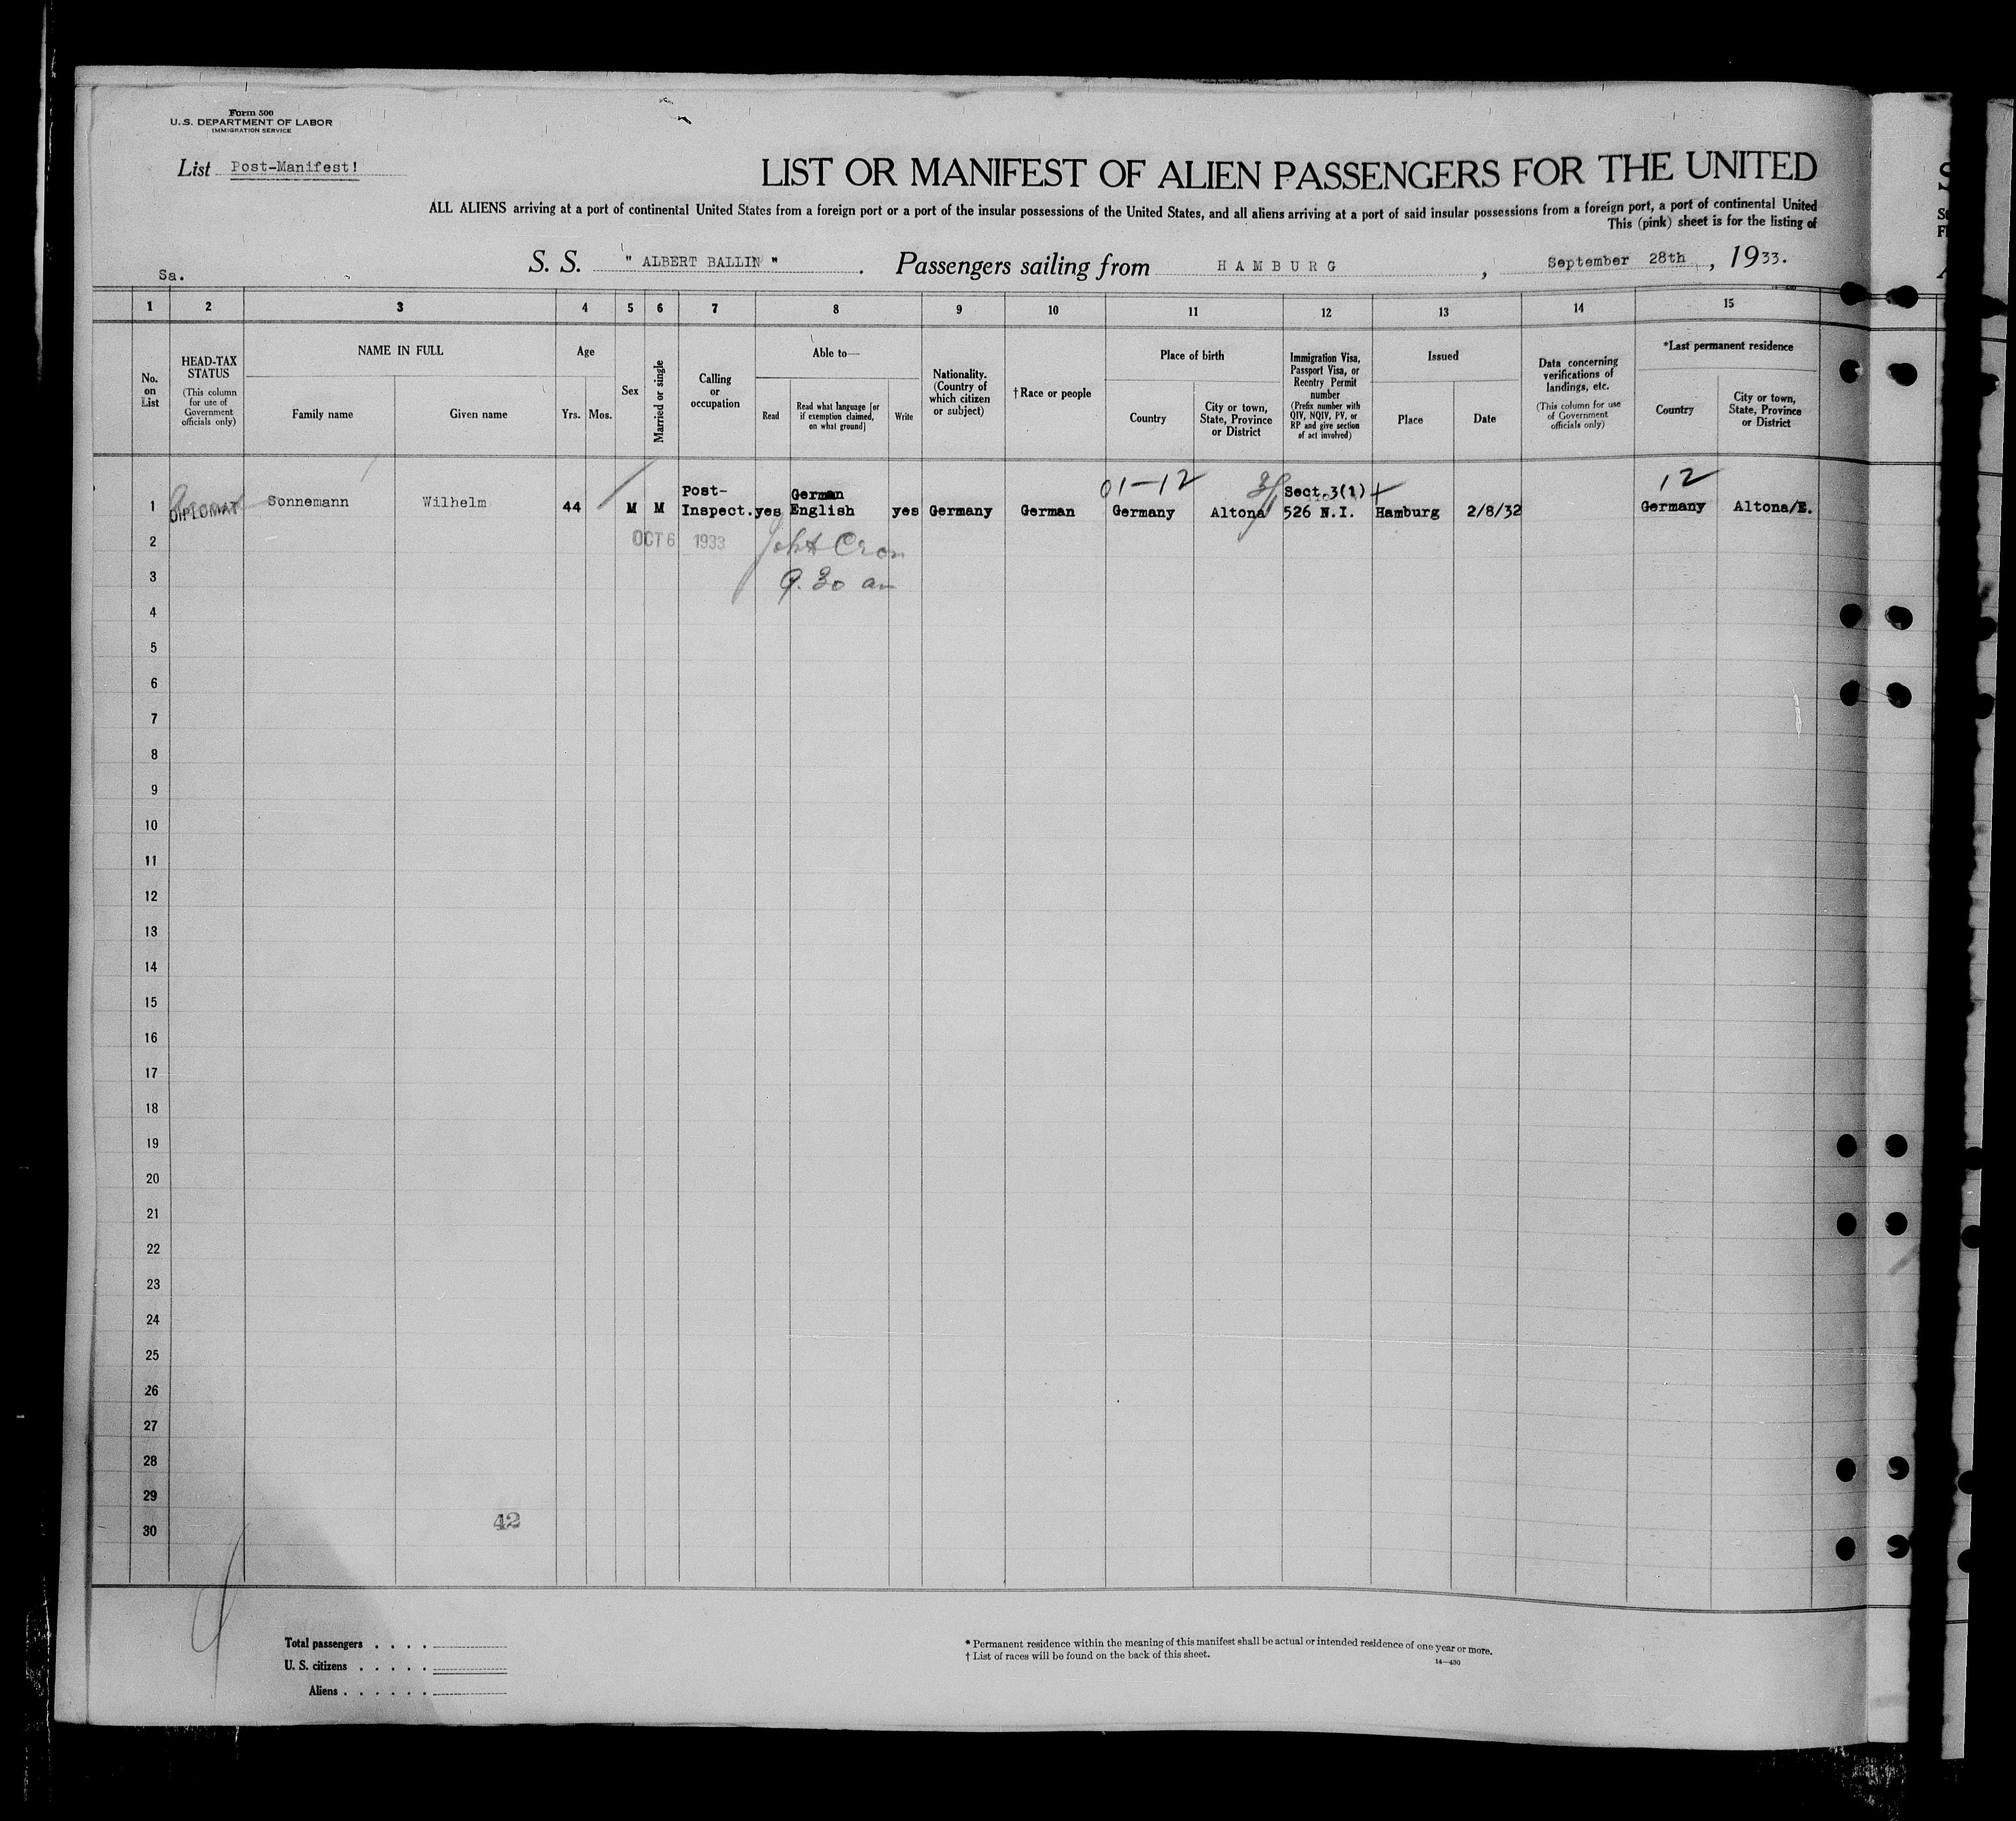 Form 500
U.S. DEPARTMENT OF LABOR
IMMIGRATION SERVICE
List Post-Manifest!
LIST OR MANIFEST OF ALIEN PASSENGERS FOR THE UNITED
ALL ALIENS arriving at a port of continental United States from a foreign port or a port of the insular possessions of the United States, and all aliens arriving at a port of said insular possessions from a foreign port, a port of continental United
This (pink) sheet is for the listing of
Sa.
S. S. " ALBERT BALLIN " . Passengers sailing from HAMBURG , September 28th , 1933.
1 2 3 4 5 6 7 8 9 10 11 12 13 14 15
No. on List
HEAD-TAX STATUS (This column for use of Government officials only)
NAME IN FULL
Family name
Given name
Age
Yrs. Mos.
Sex
Married or single
Calling or occupation
Able to—
Read
Read what language [or if exemption claimed, on what ground]
Write
Nationality. (Country of which citizen or subject)
†Race or people
Place of birth
Country
City or town, State, Province or District
Immigration Visa, Passport Visa, or Reentry Permit number (Prefix number with QIV, NQIV, PV, or RP and give section of act involved)
Issued
Place
Date
Data concerning verifications of landings, etc. (This column for use of Government officials only)
*Last permanent residence
Country
City or town, State, Province or District
01-12
12
1 DIPLOMAT Sonnemann Wilhelm 44 M M Post-Inspect. yes German English yes Germany German Germany Altona Sect.3(1) 526 N.I. Hamburg 2/8/32 Germany Altona/E.
2 OCT 6 1933
3 9.30 am
4
5
6
7
8
9
10
11
12
13
14
15
16
17
18
19
20
21
22
23
24
25
26
27
28
29
30
42
Total passengers . . . .
U. S. citizens . . . . .
Aliens . . . . . .
* Permanent residence within the meaning of this manifest shall be actual or intended residence of one year or more.
† List of races will be found on the back of this sheet.
14—430